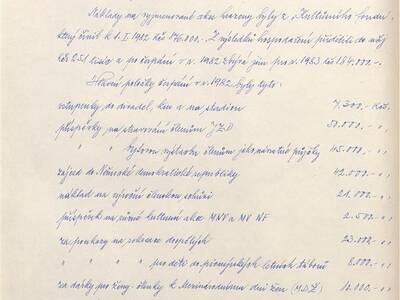 Náklady na vyjmenované akce hrazeny byly z „Kulturního fondu"
který činil k 1. I. 1982 Kčs 176.000.- Z výsledků hospodaření přiděleno do něj
Kčs 251 tisíc a po čerpání v r. 1982 zbývá jím pro r. 1983 Kčs 184.000.-
Hlavní položky čerpání v r. 1982 byly tyto:
vstupenky do divadel, kin a na stadion 7.300.- Kčs.
příspěvky na stravování členům JZD 50.000.- „
„ „ bytovou výstavbu členům jako návratné půjčky 45.000.- „
zájezd do Německé demokratické republiky 42.000.- „
náklad na výroční členskou schůzi 21.000.- „
příspěvek na různé kulturní akce MNV a MV NF 2.500.- „
za poukazy na rekreace dospělých 23.000.- „
„ „ „ pro děti do pionýrských letních táborů 8.000.- „
za dárky pro ženy-členky k Mezinárodnímu dni žen (M.D.Ž.) 12.000.- „